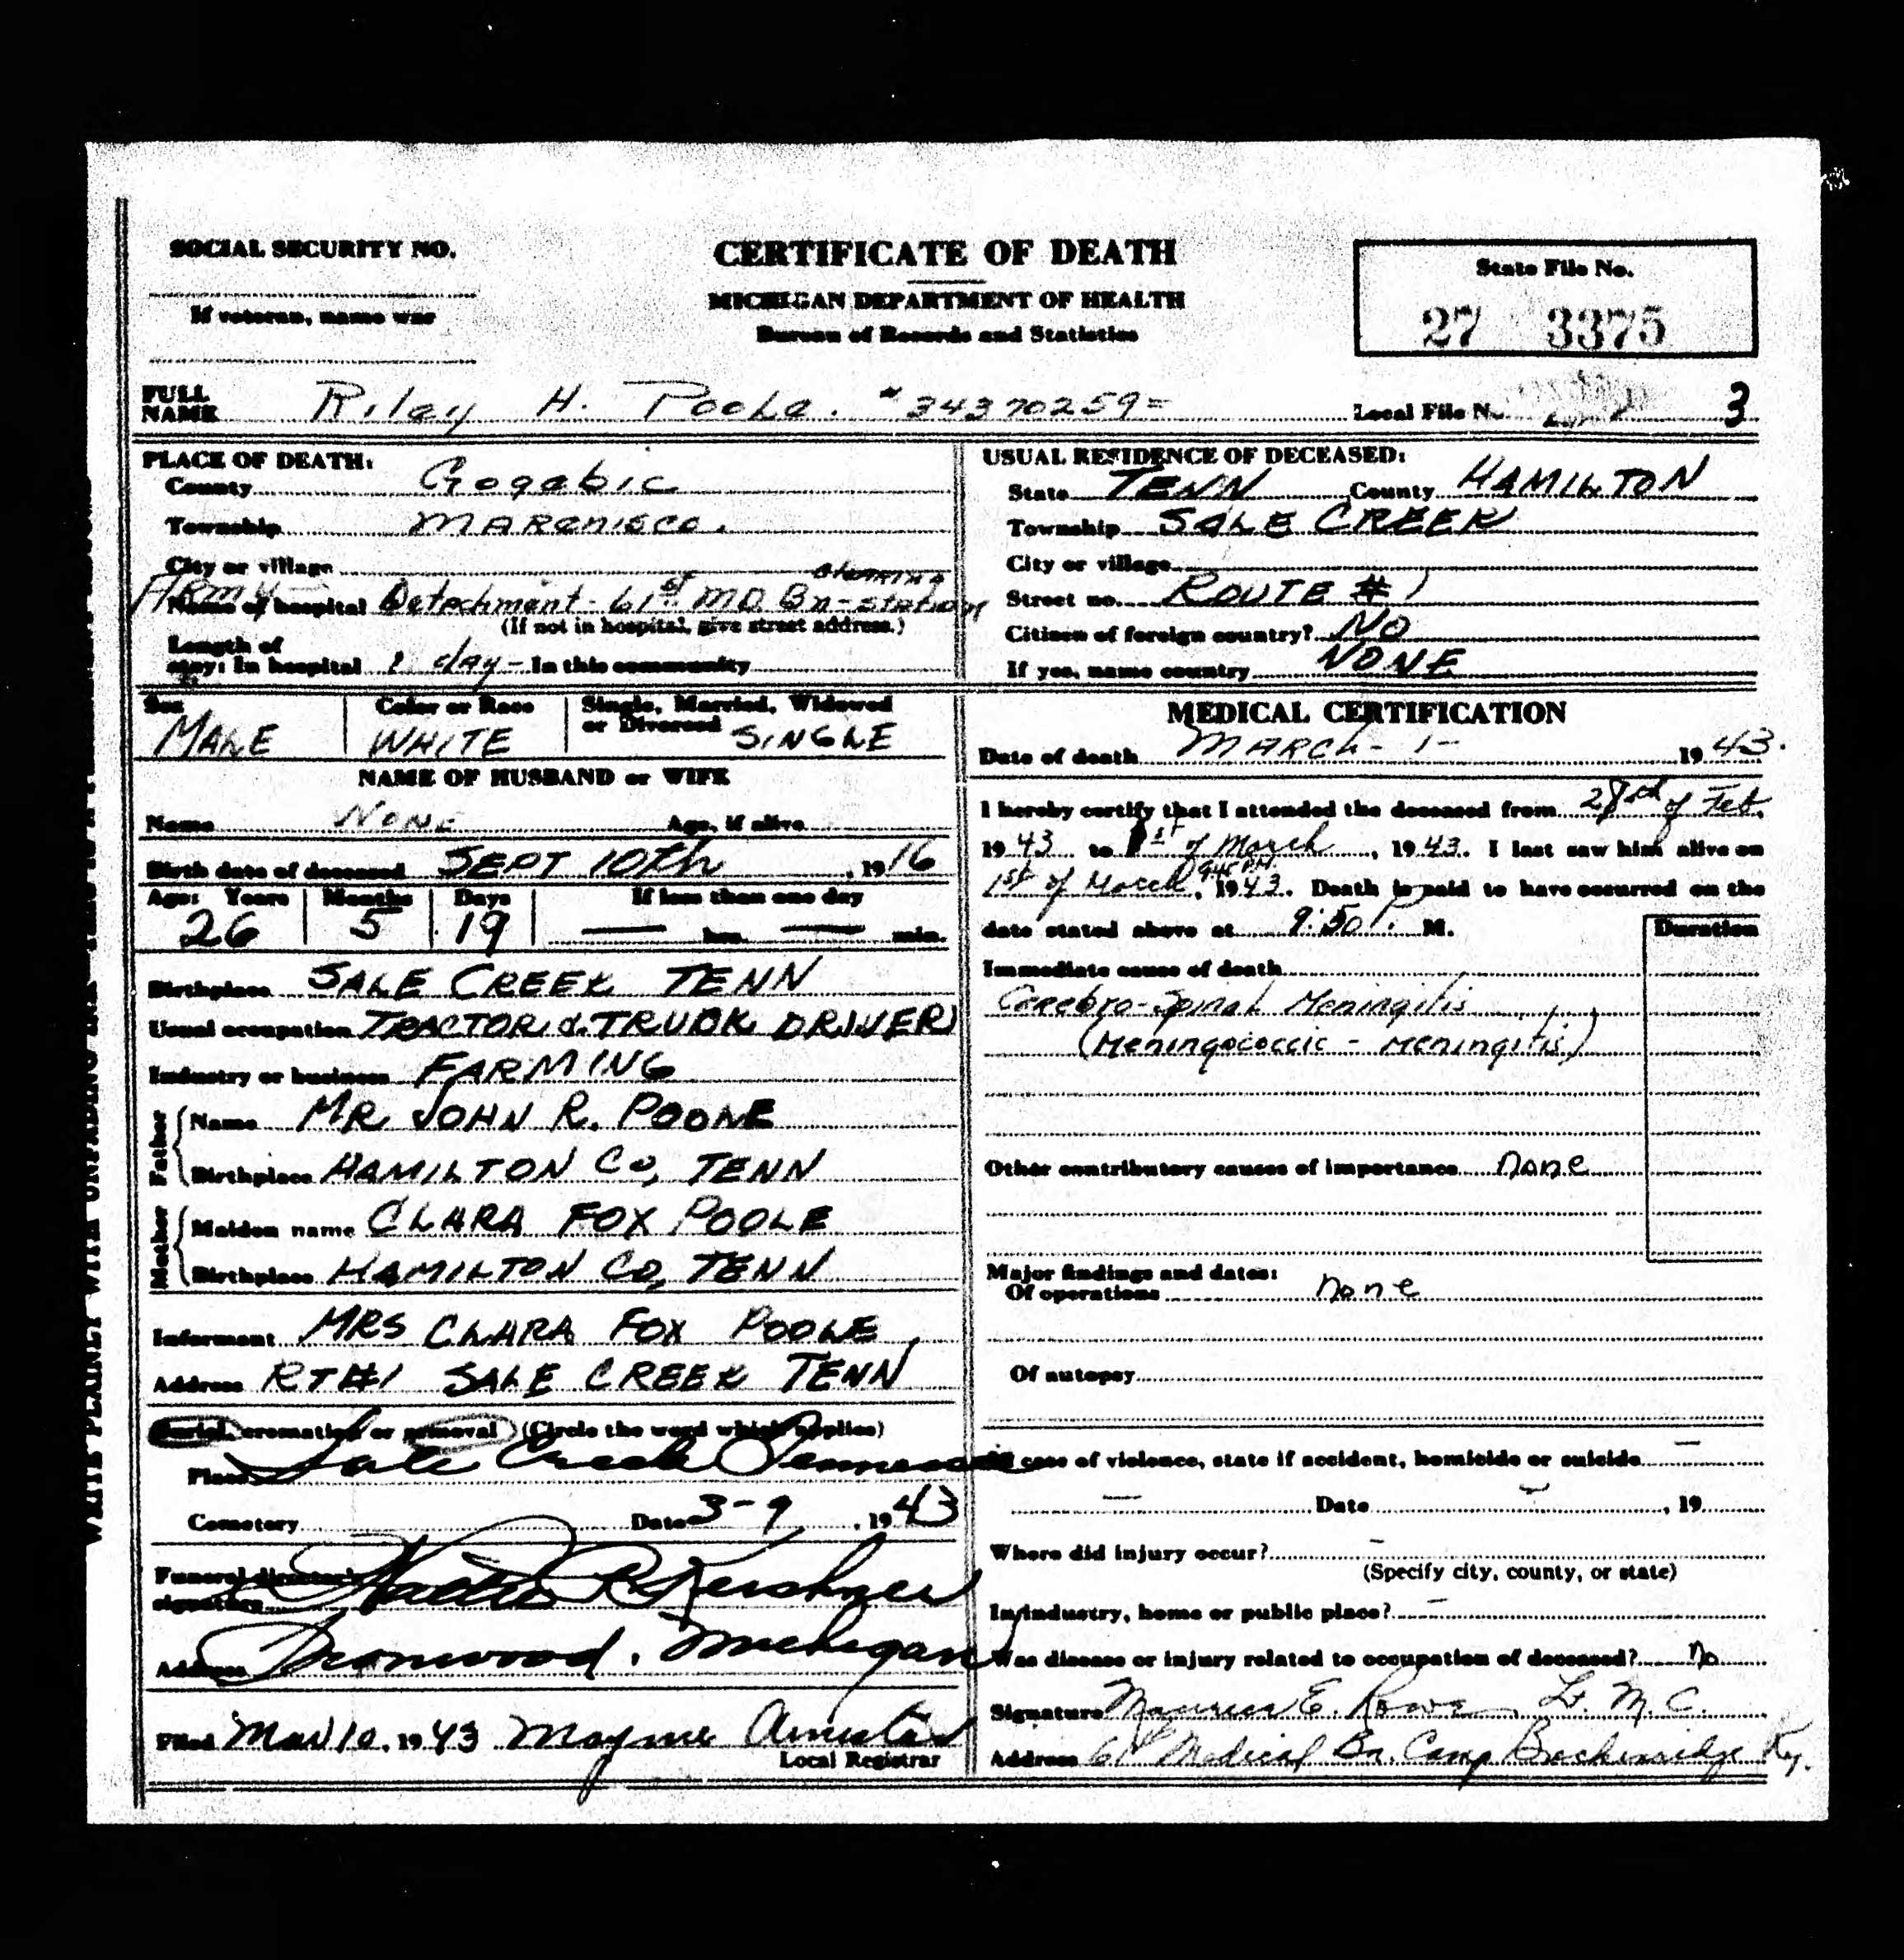 SOCIAL SECURITY NO.
If veteran, name war
CERTIFICATE OF DEATH
MICHIGAN DEPARTMENT OF HEALTH
Bureau of Records and Statistics
State File No.
27 3375
FULL NAME Riley H. Poole. #34370259=
Local File No. 3
PLACE OF DEATH:
County Gogebic
Township Marenisco.
City or village
Army
Name of hospital Detachment - 61st MD. Bn - Clearing station
(If not in hospital, give street address.)
Length of
stay: In hospital 1 day - In this community
USUAL RESIDENCE OF DECEASED:
State TENN County HAMILTON
Township SALE CREEK
City or village
Street no. ROUTE #1
Citizen of foreign country? NO
If yes, name country NONE
Sex MALE
Color or Race WHITE
Single, Married, Widowed or Divorced SINGLE
NAME OF HUSBAND or WIFE
Name NONE Age, if alive
Birth date of deceased SEPT 10th, 1916
Age: Years 26 Months 5 Days 19 If less than one day — hrs. — min.
Birthplace SALE CREEK TENN
Usual occupation TRACTOR & TRUCK DRIVER
Industry or business FARMING
Father
Name MR JOHN R. POOLE
Birthplace HAMILTON CO, TENN
Mother
Maiden name CLARA FOX POOLE
Birthplace HAMILTON CO, TENN
Informant MRS CLARA FOX POOLE
Address RT#1 SALE CREEK TENN
Burial, cremation or removal (Circle the word which applies)
Place Sale Creek Tennessee
Cemetery Date 3-9, 1943
Funeral director's signature Kershner
Address Ironwood, Michigan
Filed Mar 10, 1943 Mayme
Local Registrar
MEDICAL CERTIFICATION
Date of death MARCH - 1 - 1943.
I hereby certify that I attended the deceased from 28th of Feb.
1943 to 1st of March, 1943. I last saw him alive on
1st of March, 9:45 PM 1943. Death is said to have occurred on the
date stated above at 9:50 P. M.
Duration
Immediate cause of death
Cerebro-Spinal Meningitis
(Meningococcic - Meningitis)
Other contributory causes of importance none
Major findings and dates:
Of operations none
Of autopsy
In case of violence, state if accident, homicide or suicide —
— Date — , 19
Where did injury occur? —
(Specify city, county, or state)
In industry, home or public place? —
Was disease or injury related to occupation of deceased? no
Signature Maurice E. Rowe Lt. M.C.
Address 61st Medical Bn. Camp Breckenridge Ky.